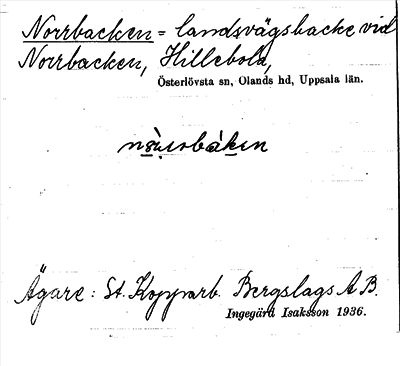 Norrbacken = landsvägsbacke vid
Norrbacken, Hillebola,
Österlövsta sn, Olands hd, Uppsala län.
Ägare: St. Kopparb. Bergslags A B.
Ingegärd Isaksson 1936.